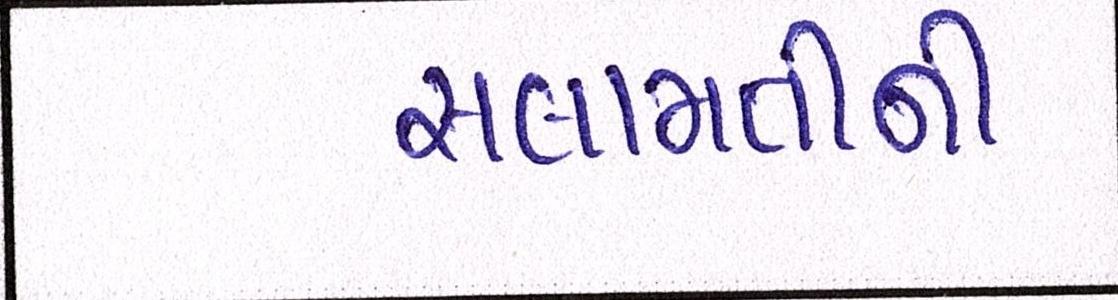 સલામતીની